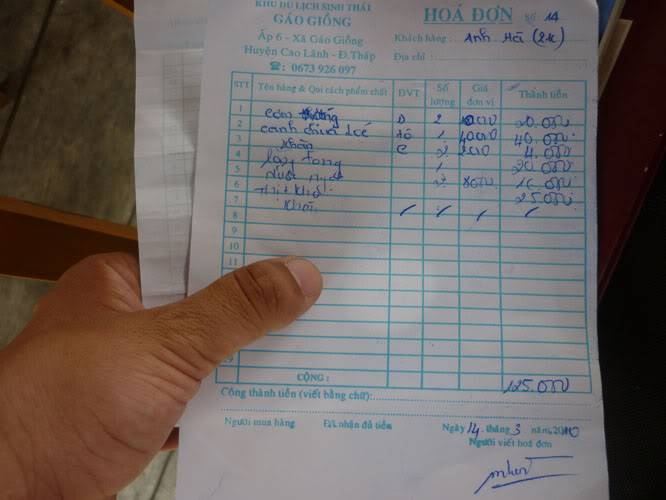 KHU DU LỊCH SINH THÁI
GÁO GIỒNG
Ấp 6 - Xã Gáo Giồng
Huyện Cao Lãnh - Đ.Tháp
☎: 0673 926 097
HOÁ ĐƠN Số 14
Khách hàng: Anh Hà (2K)
Địa chỉ:
STT Tên hàng & Qui cách phẩm chất ĐVT Số lượng Giá đơn vị Thành tiền
1 cơm D 2 10000 20.000
2 canh chua tô 1 40000 40.000
3 khăn C 2 2000 4.000
4 1 20.000
5 nước ngọt 2 8000 16.000
6 thịt kho 25.000
7
8
9
10
11
CỘNG: 125.000
Cộng thành tiền (viết bằng chữ):
Người mua hàng Đã nhận đủ tiền Ngày 14 tháng 3 năm 2010
Người viết hoá đơn